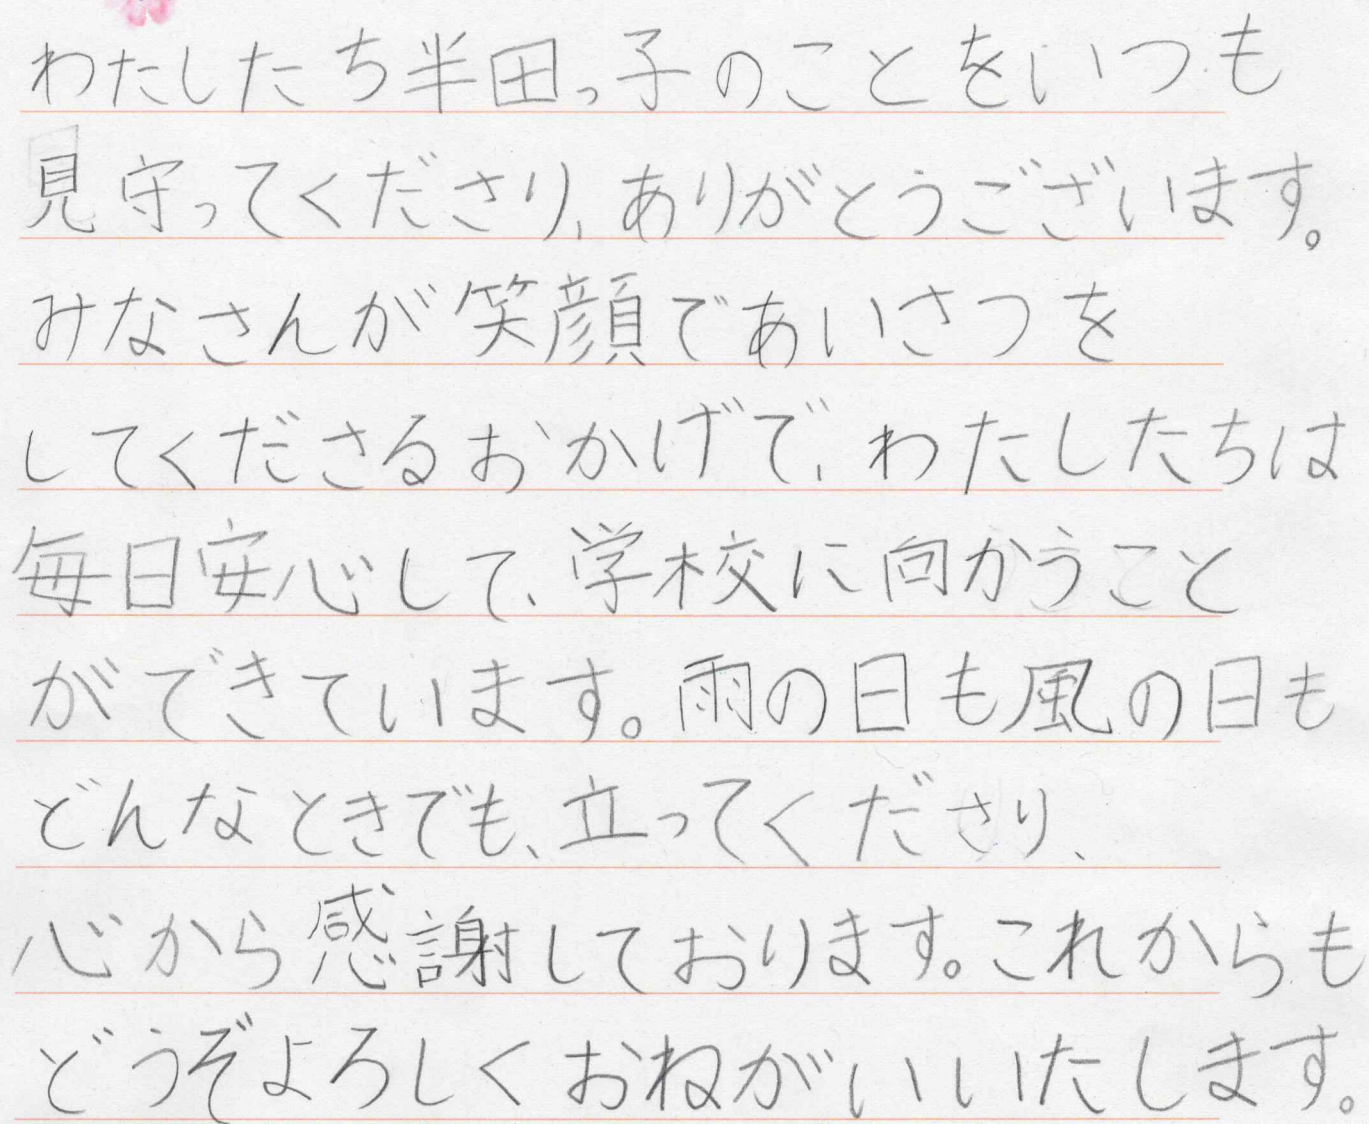 わたしたち半田っ子のことをいつも
見守ってくださり、ありがとうございます。
みなさんが笑顔であいさつを
してくださるおかげで、わたしたちは
毎日安心して、学校に向かうこと
ができています。雨の日も風の日も
どんなときでも、立ってくださり、
心から感謝しております。これからも
どうぞよろしくおねがいいたします。